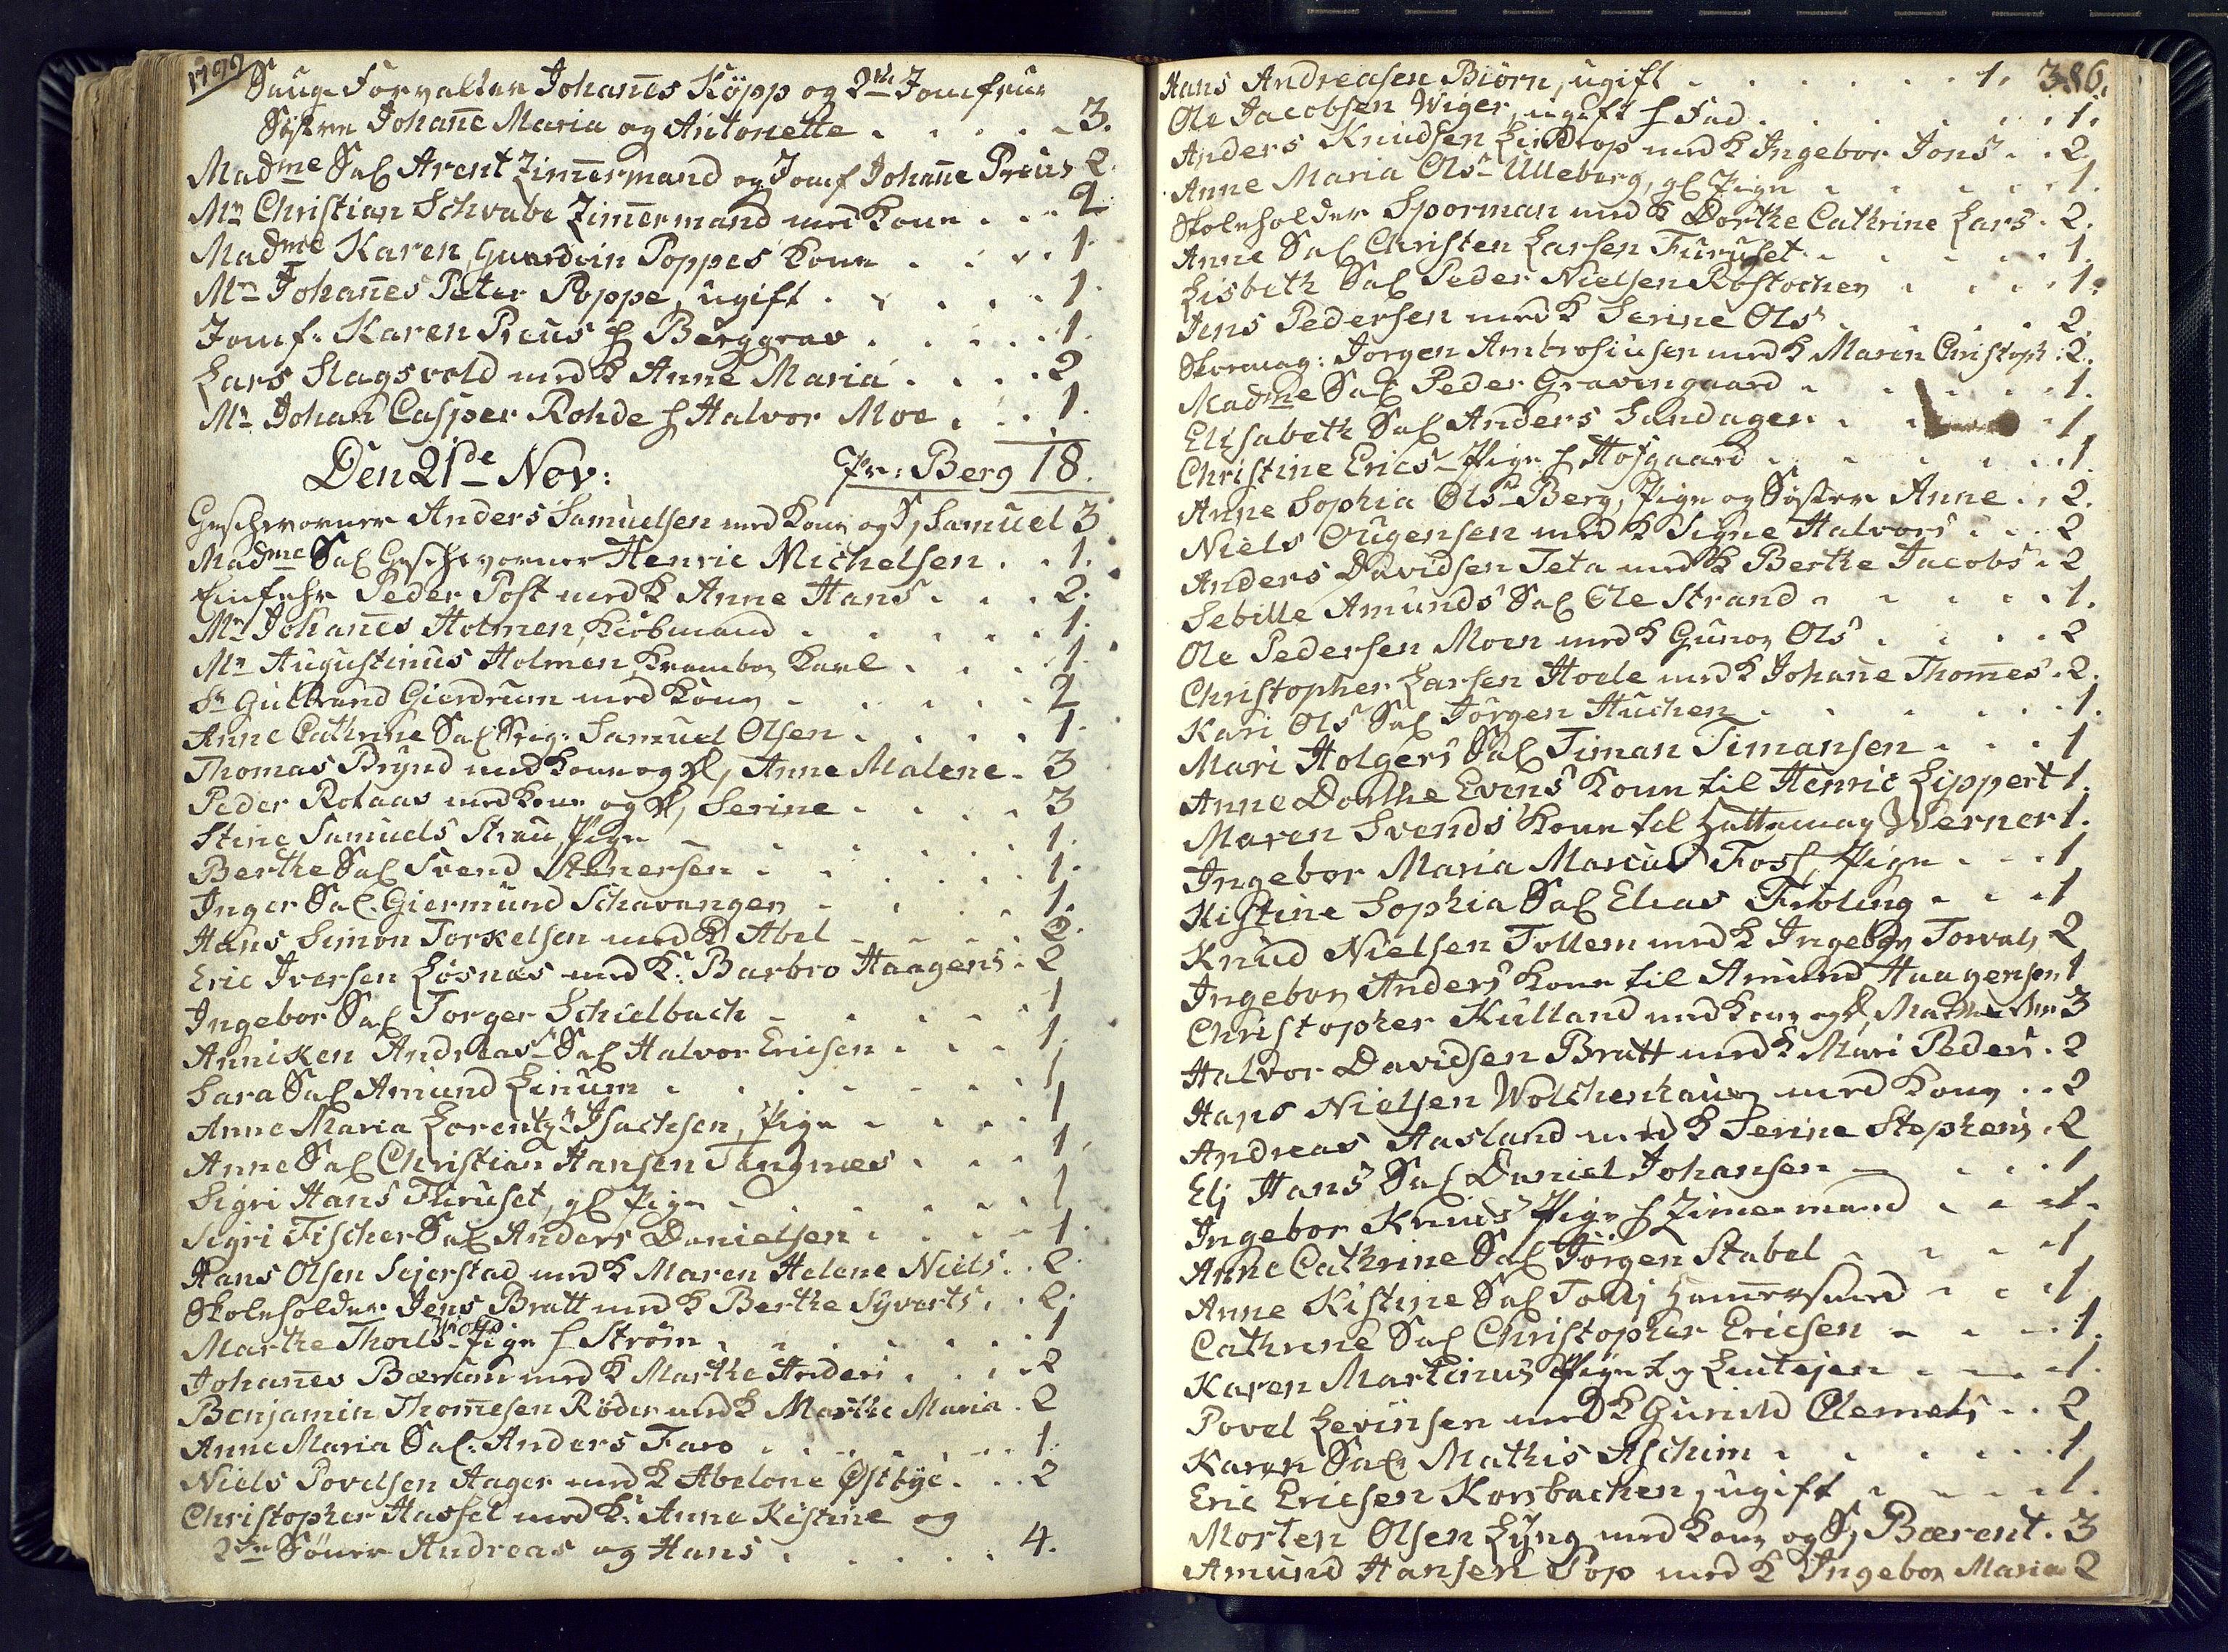 1799
Saug-Forvalter Johan̄es Köpp og 2de Jomfrue
Søstre Johan̄e Maria og Antonette . . . . 3.
Madme Sal Arent Zim̄ermand og Jomf Johan̄e Preus 2
Mr Christian Schvabe Zim̄ermand med Kone . . . 2
Madme Karen, Guardein Poppes Kone . . . . 1.
Mr Johan̄es Peter Poppe, ugift . . . . . 1.
Jomf. Karen Preus h Berggrav . . . . . 1.
Lars Slagsvold med K Anne Maria . . . . 2
Mr Johan Casper Rohde h Halvor Moe . . . 1.
Den 21de Nov: Pr: Berg 18.
Geschvorner Anders Samuelsen med Kone og S, Samuel 3
Madme Sal Geschvorner Henric Michelsen . . 1.
Einfehr Peder Post med K Anne Hans . . . 2.
Mr Johan̄es Holmen, Kiøbmand . . . . . 1.
Mr Augustinus Holmen Krambor Karl . . . 1.
Sr Gulbrand Gierdrum med Kone . . . . . 2
Anne Cathrine Sal Stig: Samuel Olsen . . . . 1.
Thomas Brynd med Kone og D, Anne Malene . 3
Peder Rolaas med Kone og D, Serine . . . . 3
Stine Samuels Strau, Pige . . . . . 1.
Berthe Sal Svend Stenersen . . . . . . 1.
Inger Sal. Giermund Schavangen . . . . 1.
Hans Simon Torkelsen med K Abel . . . . 2.
Eric Iversen Løsnæs med K: Barbro Haagens . 2
Ingebor Sal Torger Schielbach . . . . . 1
Anniken Andreas Sal Halvor Ericsen . . . 1.
Sara Sal Amund Linum . . . . . . 1
Anne Maria Lorentz Isachsen, Pige . . . . 1
Anne Sal Christian Hansen Tangnæs . . . 1.
Sigri Hans Furuset, gl Pige . . . . . 1
Sigri Fischer Sal Anders Danielsen . . . . 1.
Hans Olsen Sejerstad med K Maren Helene Niels . . 2.
Skoleholder Jens Bratt med K Berthe Syverts . . 2.
Marthe Thoels Pige h Strøm . . . . . . 1
Johan̄es Bærum med K Marthe Anders . . . 2
Benjamin Thom̄esen Røder med K Marthe Maria . 2
Anne Maria Sal. Anders Faro . . . . . . 1.
Niels Povelsen Aager med K Abelone Østbye . . . 2
Christopher Hassel med K. Anne Kistine og
2de Sønner Andreas og Hans . . . . . 4.
Hans Andreasen Biørn, ugift . . . . . . 1. 386.
Ole Jacobsen Wiger, ugift h Fad . . . . . . 1.
Anders Knudsen Lindtop med K Ingebor Jons . . 2
Anne Maria Ols Ulleberg, gl Pige . . . . . 1.
Skoleholder Sporman med K Dorthe Cathrine Lars . 2.
Anne Sal Christen Larsen Furuset . . . . . 1.
Lisbeth Sal Peder Nielsen Rostochen . . . . 1.
Jens Pedersen med K Serine Ols . . . . . 2.
Skoemag: Jörgen Ambrosiusen med K Maren Christoph . 2.
Madme Sal Peder Gravengaard . . . . . . 1.
Elisabeth Sal Anders Sundagen . . . . 1
Christine Erics Pige h Hofgaard . . . . . . 1.
Anne Sophia Ols Berg, Pige og Søster Anne . . 2.
Niels Ougensen med K Signe Halvors . . . 2
Anders Davidsen Teta med K Berthe Jacobs . 2
Sebille Amunds Sal Ole Strand . . . . . 1.
Ole Pedersen Moen med K Gunor Ols . . . . 2
Christopher Larsen Hoele med K Johan̄e Thom̄es . 2.
Kari Ols Sal Jörgen Huchen . . . . . . 1.
Mari Holgers Sal Timan Timansen . . . 1
Anne Dorthe Evens Kone til Henric Lippert 1.
Maren Svends Kone til Hattemag Werner 1.
Ingebor Maria Marcus Foss, Pige . . . 1
Kistine Sophia Sal Elias Frøling . . . 1
Knud Nielsen Tollem med K Ingebor Torvals 2
Ingebor Anders Kone til Amund Haagensen 1
Christopher Kulland med Kone og D, 3
Halvor Davidsen Bratt med K Mari Peders . 2
Hans Nielsen Wolchenhauer med Kone . . 2
Andreas Hasland med K Serine Stephens . 2
Elj Hans Sal Daniel Johansen . . . . 1
Ingebor Knuds Pige h Zim̄ermand . . . 1.
Anne Cathrine Sal Jörgen Stabel . . . . 1
Anne Kistine Sal Tollj Ham̄ersmed . . . 1.
Cathrine Sal Christopher Ericsen . . . . 1.
Karen Martinus Pige Lintejen . . . . 1.
Povel Levinsen med K Gunild Clemets . . 2
Karen Sal Mathis Aschim . . . . . . 1
Eric Ericsen Korsbachen, ugift . . . . 1.
Morten Olsen Lyng med Kone og S, Bærent . 3
Amund Hansen Top med K Ingebor Maria 2